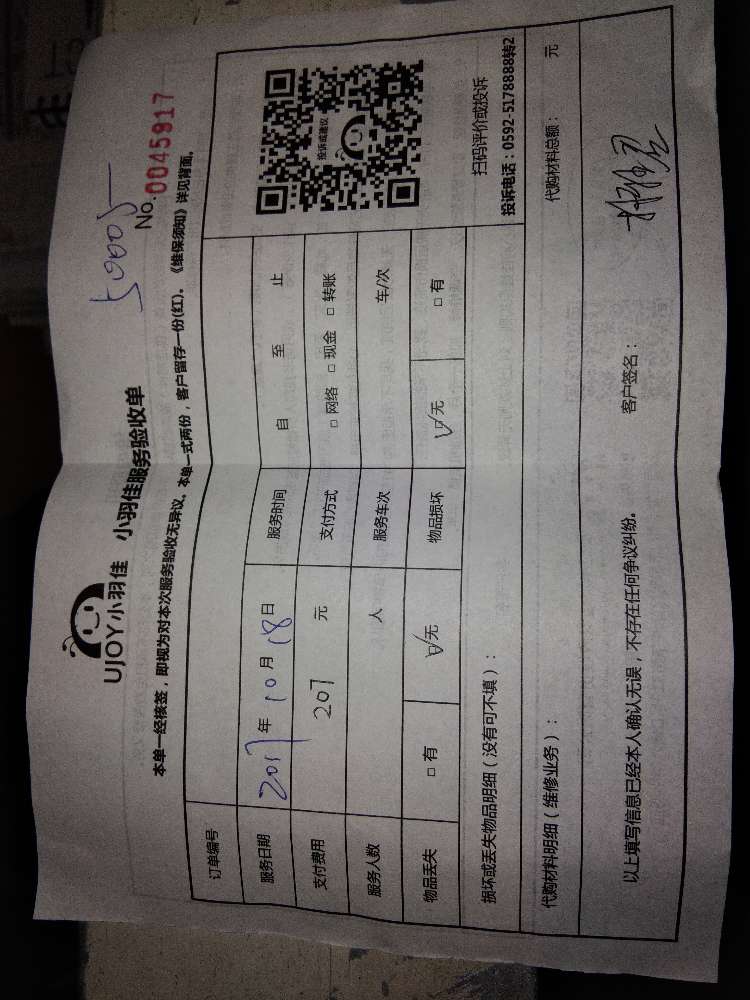 UJOY小羽佳 小羽佳服务验收单
50005
No. 0045917
本单一经核签，即视为对本次服务验收无异议。本单一式两份，客户留存一份(红)。《维保须知》详见背面。
订单编号
服务日期 2017年10月18日 服务时间 自 至 止
支付费用 207 元 支付方式 □ 网络 □ 现金 □ 转账
服务人数 人 服务车次 车/次
物品丢失 □ 有 ☑无 物品损坏 ☑无 □ 有
投诉或建议
扫码评价或投诉
投诉电话：0592-5178888转2
损坏或丢失物品明细（没有可不填）：
代购材料明细（维修业务）： 代购材料总额： 元
以上填写信息已经本人确认无误，不存在任何争议纠纷。 客户签名：